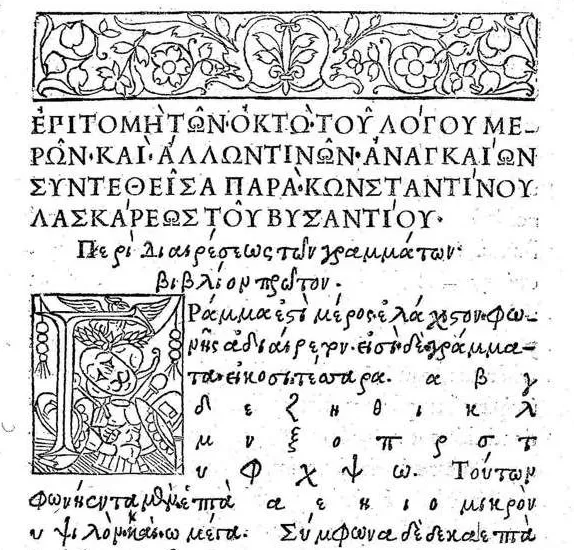 ἘΠΙΤΟΜῊ ΤΩ͂Ν·ὈΚΤῺ·ΤΟΥ͂ ΛΌΓΟΥ ΜΕ–
ΡΩ͂Ν·ΚΑῚ·ἌΛΛΩΝ ΤΙΝΩ͂Ν·ἈΝΑΓΚΑΊΩΝ
ΣΥΝΤΕΘΕΙ͂ΣΑ ΠΑΡᾺ·ΚΩΝΣΤΑΝΤΊΝΟΥ
ΛΑΣΚΆΡΕΩΣ ΤΟΥ͂ ΒΥΖΑΝΤΊΟΥ·
Περὶ Διαιρέσεως τῶν γραμμάτων·
βιβλίον πρῶτον.
Γράμμα ἐστὶ μέρος ἐλάχιστον φω–
νῆς ἀδιαίρετον. εἰσὶ δὲ γράμμα–
τα εἰκοσιτέσσαρα. α β γ
δ ε ζ η θ ι κ λ
μ ν ξ ο π ρ σ τ
υ φ χ ψ ω. Τούτων
φωνήεντα μὲν ἑπτὰ α ε η ι ο μικρὸν
υ ψιλὸν, καὶ ω μέγα. Σύμφωνα δὲ δεκαεπτὰ